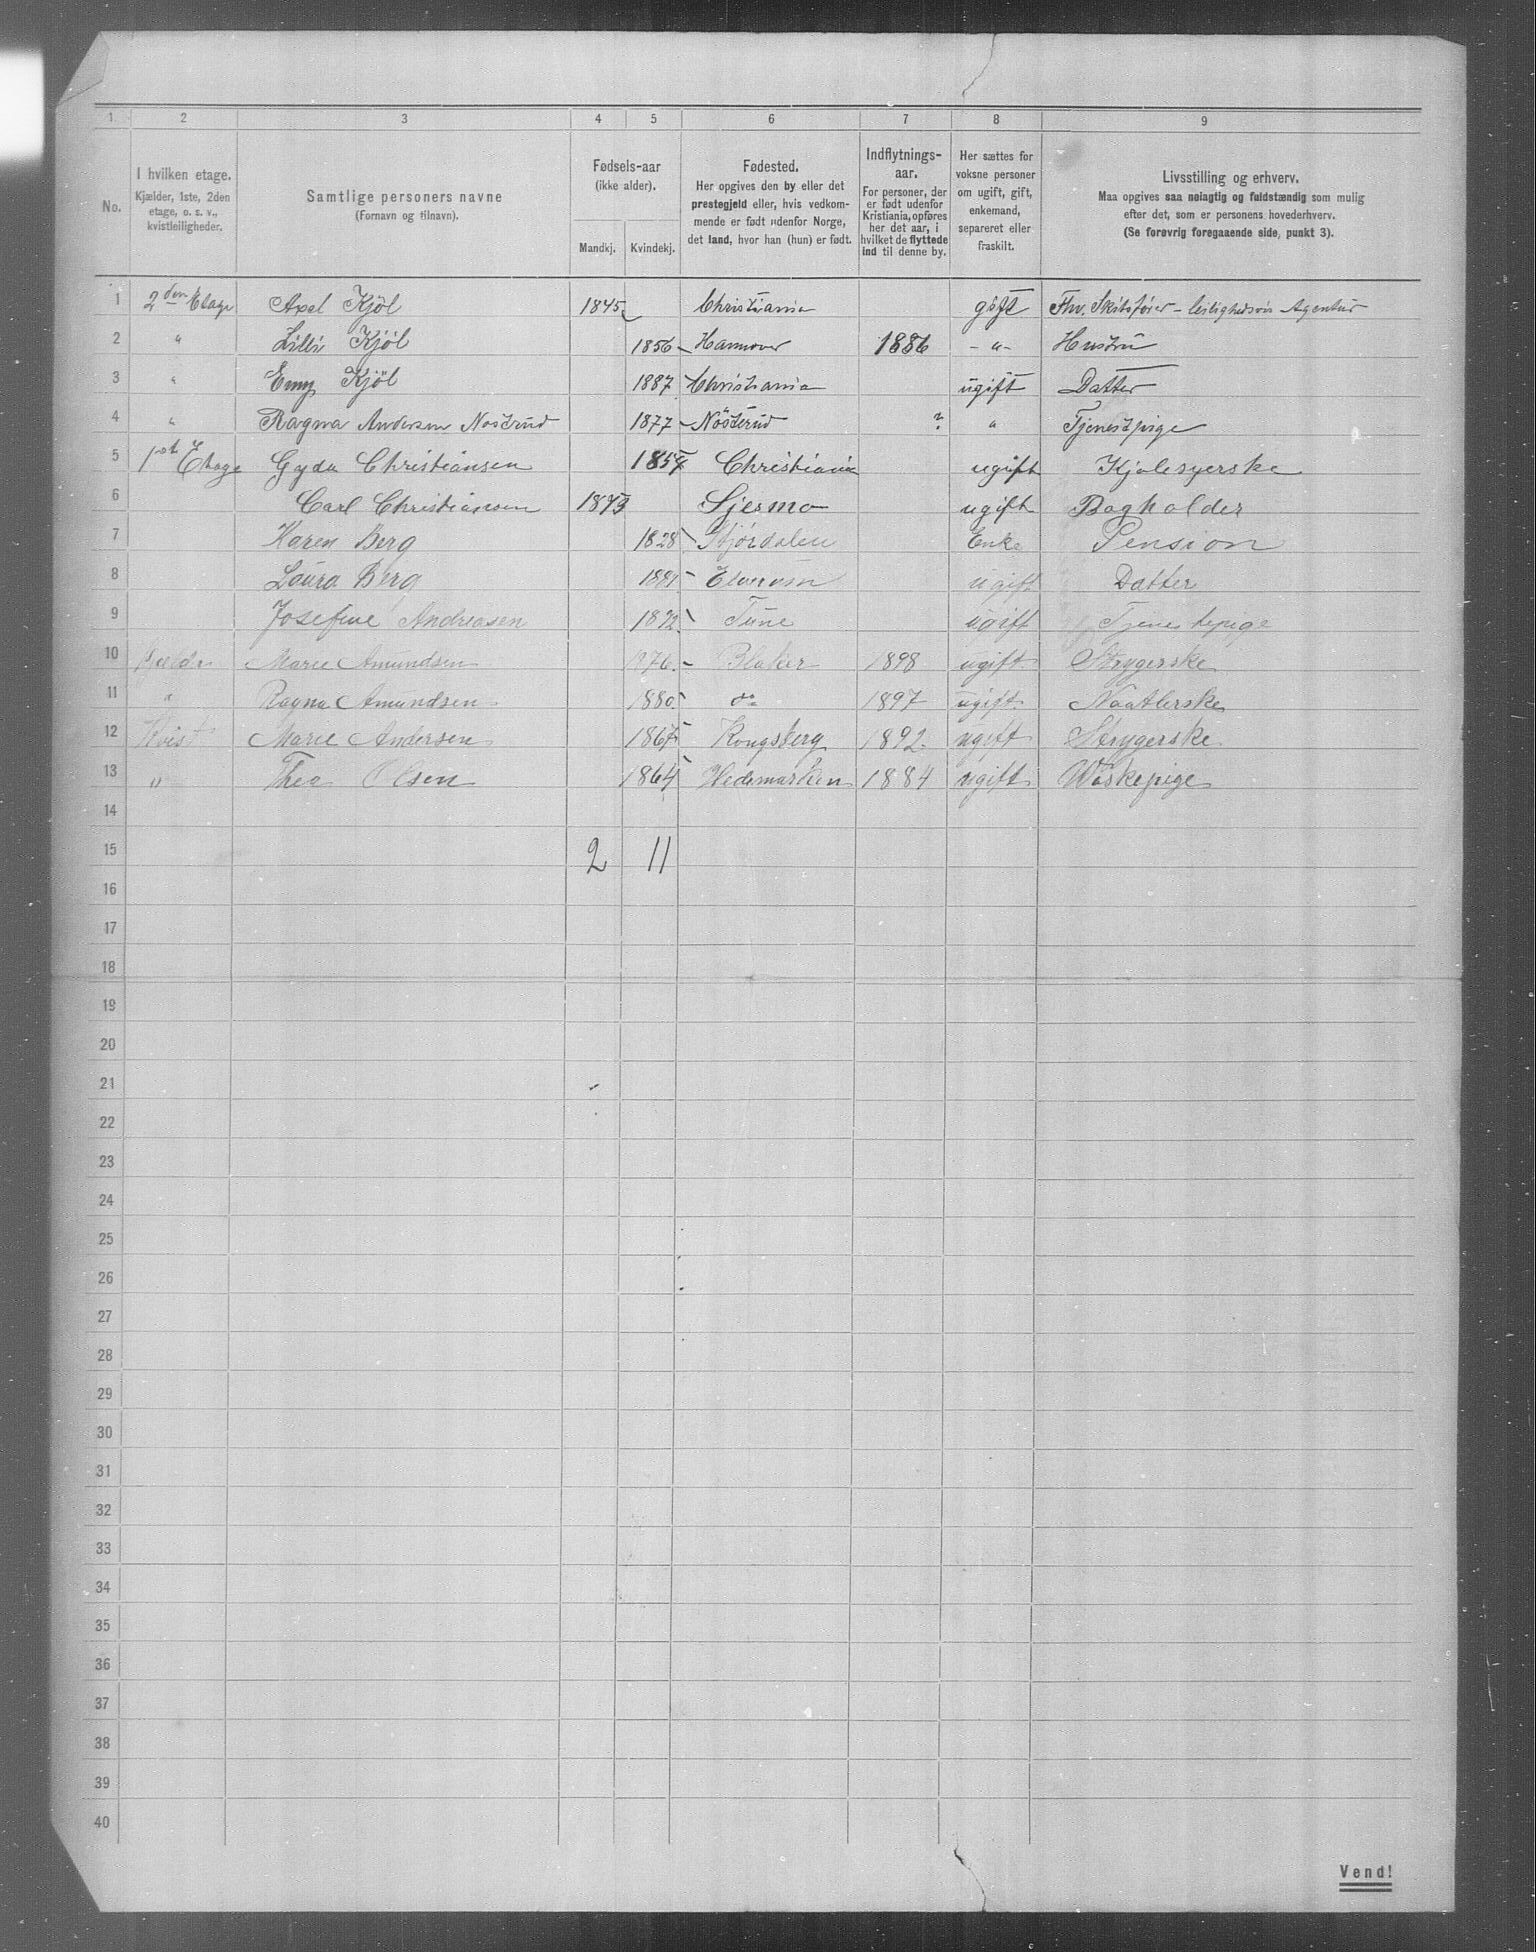 1 2 3 4 5 6 7 8 9
No.
I hvilken etage.
Kjælder, 1ste, 2den
etage, o. s. v.,
kvistleiligheder.
Samtlige personers navne
(Fornavn og tilnavn).
Fødsels-aar
(ikke alder).
Mandkj. Kvindekj.
Fødested.
Her opgives den by eller det
prestegjeld eller, hvis vedkom-
mende er født udenfor Norge,
det land, hvor han (hun) er født.
Indflytnings-
aar.
For personer, der
er født udenfor
Kristiania, opføres
her det aar, i
hvilket de flyttede
ind til denne by.
Her sættes før
voksne personer
om ugift, gift,
enkemand,
separeret eller
fraskilt.
Livsstilling og erhverv.
Maa opgives saa nøiagtig og fuldstændig som mulig
efter det, som er personens hovederhverv.
(Se forøvrig foregaaende side, punkt 3).
1 2den Etage Axel Kjöl 1845 Christiania gift Fhv. Skibsfører - leilighedsvis Agentur
2 " Lilli Kjöl 1856 Hannover 1886 - " - Hustru
3 " Emy Kjöl 1887 Christiania ugift Datter
4 " Ragna Andersen Nöstrud 1877 Nösterud ? " Tjenestpige
5 1st Etage Gyda Christiansen Christiania ugift Kjolesyerske
6 Carl Christiansen 1873 ugift Bogholder
7 Karen Berg 1828 Stjørdalen Enke Pension
8 Laura Berg Elverum ugift Datter
9 Josefine Andreasen Tune ugift Tjenestepige
10 Marie Amundsen 1876. Blaker 1898 ugift. Strygerske
11 " Ragna Amundsen 1880 do 1897 ugift.
12 Kvist Marie Andersen Kongsberg 1892. ugift Strygerske
13 " Thea Olsen 1864 Hedemarken 1884 ugift Vaskepige
14
15 2 11
16
17
18
19
20
21
22
23
24
25
26
27
28
29
30
31
32
33
34
35
36
37
38
39
40
Vend!